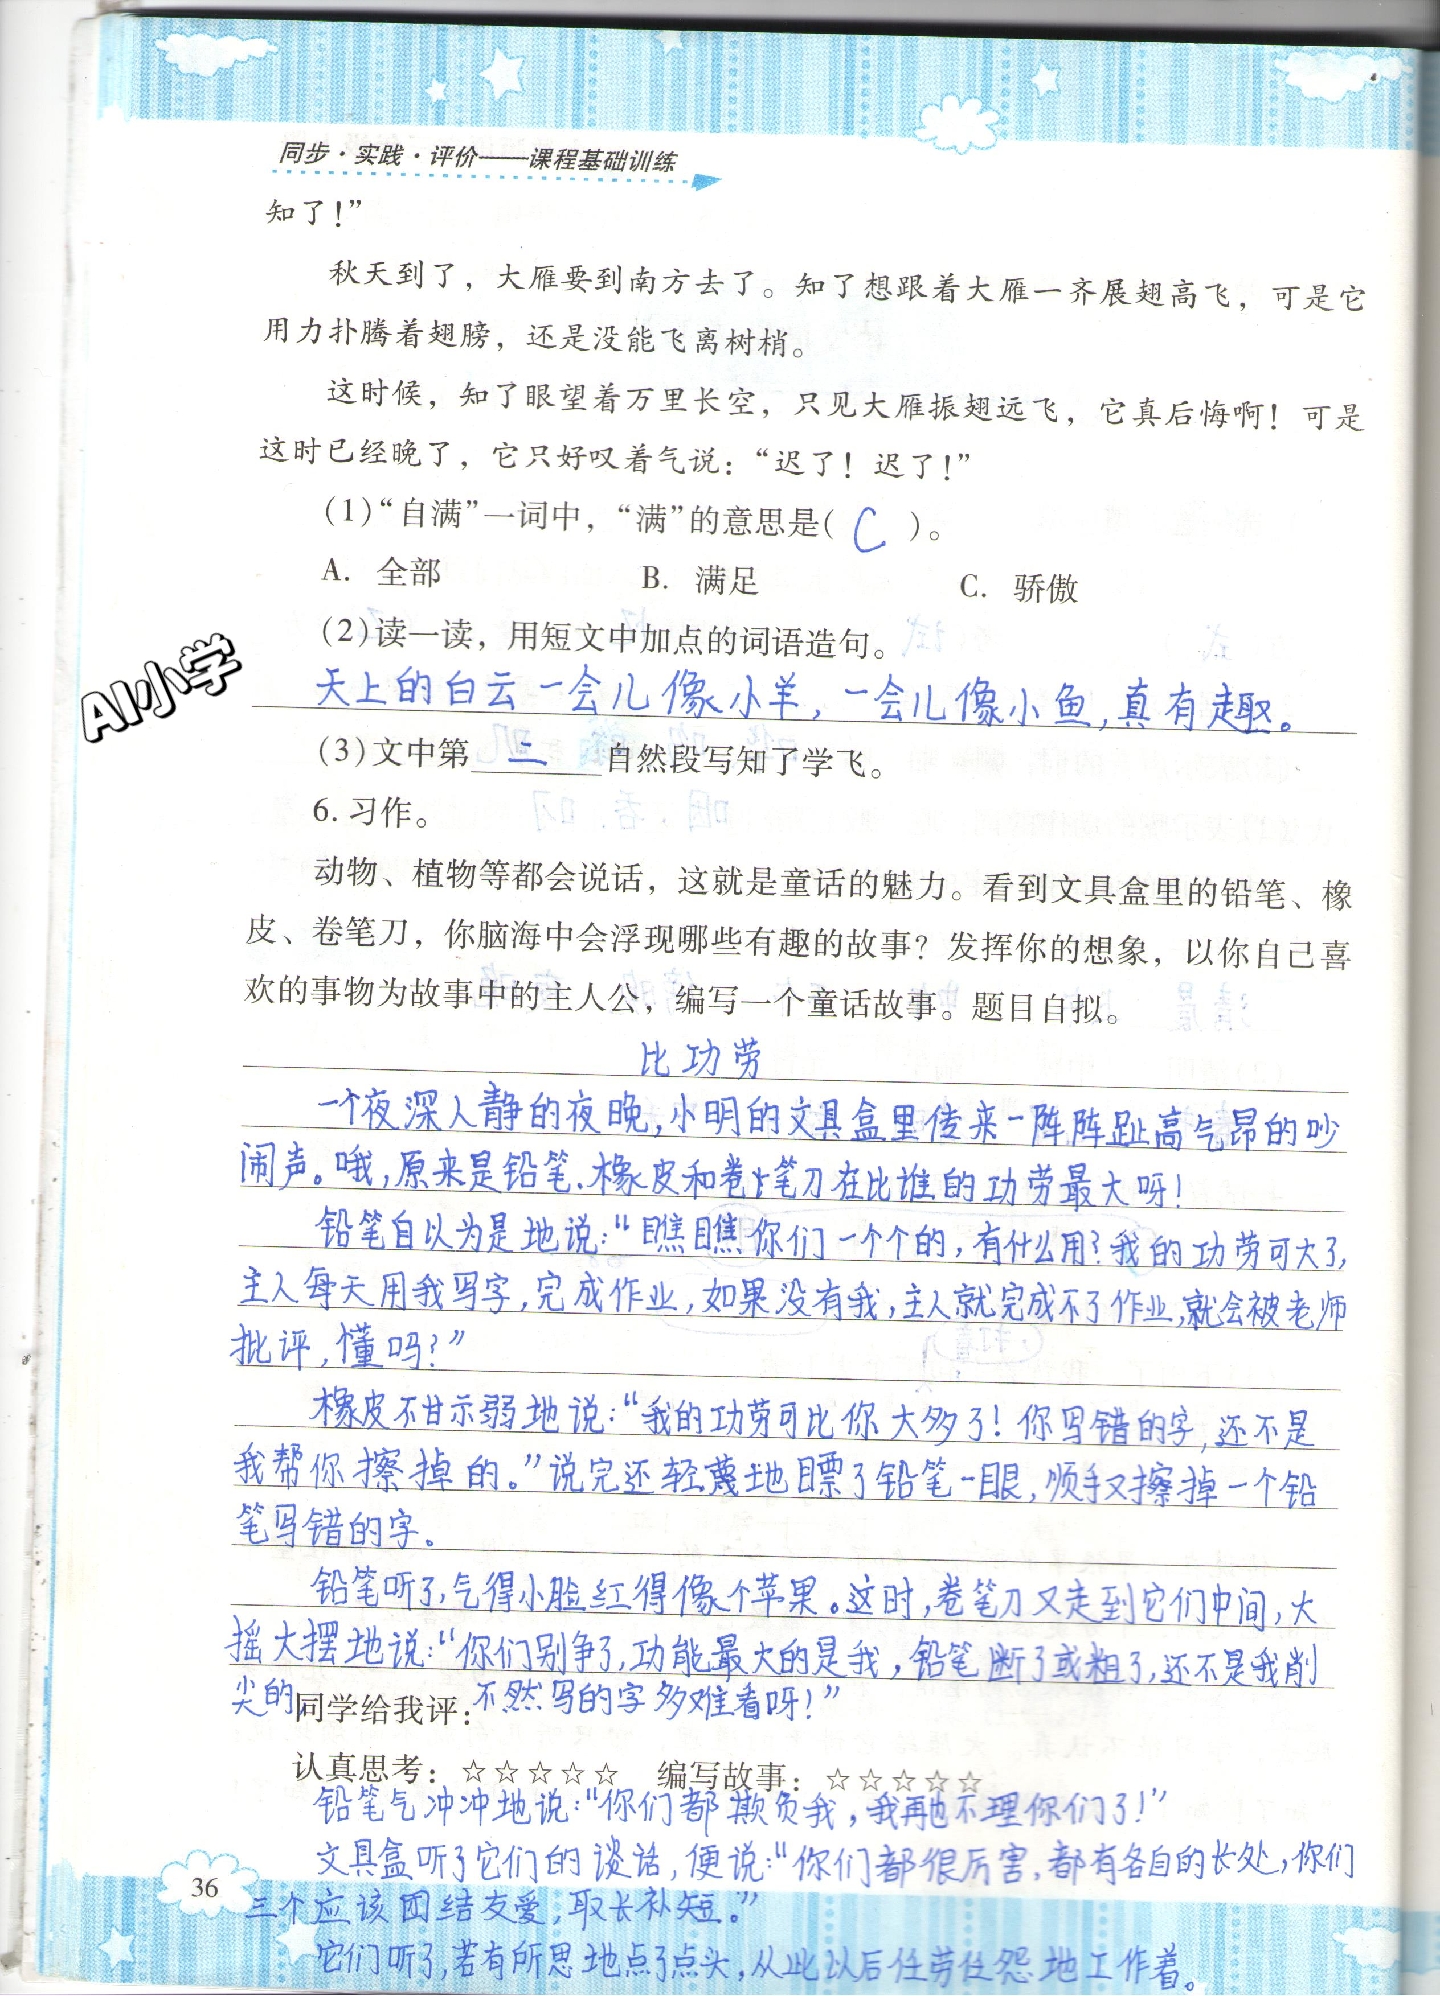 同步·实践·评价——课程基础训练
知了！”
秋天到了，大雁要到南方去了。知了想跟着大雁一齐展翅高飞，可是它
用力扑腾着翅膀，还是没能飞离树梢。
这时候，知了眼望着万里长空，只见大雁振翅远飞，它真后悔啊！可是
这时已经晚了，它只好叹着气说：“迟了！迟了！”
(1)“自满”一词中，“满”的意思是( C )。
A. 全部 B. 满足 C. 骄傲
(2)读一读，用短文中加点的词语造句。
AI小学
天上的白云一会儿像小羊，一会儿像小鱼，真有趣。
(3)文中第 二 自然段写知了学飞。
6. 习作。
动物、植物等都会说话，这就是童话的魅力。看到文具盒里的铅笔、橡
皮、卷笔刀，你脑海中会浮现哪些有趣的故事？发挥你的想象，以你自己喜
欢的事物为故事中的主人公，编写一个童话故事。题目自拟。
比功劳
一个夜深人静的夜晚，小明的文具盒里传来一阵阵趾高气昂的吵
闹声。哦，原来是铅笔、橡皮和卷笔刀在比谁的功劳最大呀！
铅笔自以为是地说：“瞧瞧你们一个个的，有什么用？我的功劳可大了，
主人每天用我写字，完成作业，如果没有我，主人就完成不了作业，就会被老师
批评，懂吗？”
橡皮不甘示弱地说：“我的功劳可比你大多了！你写错的字，还不是
我帮你擦掉的。”说完还轻蔑地瞟了铅笔一眼，顺手又擦掉一个铅
笔写错的字。
铅笔听了，气得小脸红得像个苹果。这时，卷笔刀又走到它们中间，大
摇大摆地说：“你们别争了，功能最大的是我，铅笔断了或粗了，还不是我削
尖的，不然写的字多难看呀！”
同学给我评：
认真思考：☆☆☆☆☆ 编写故事：☆☆☆☆☆
铅笔气冲冲地说：“你们都欺负我，我再也不理你们了！”
文具盒听了它们的谈话，便说：“你们都很厉害，都有各自的长处，你们
三个应该团结友爱，取长补短。”
它们听了，若有所思地点了点头，从此以后任劳任怨地工作着。
36